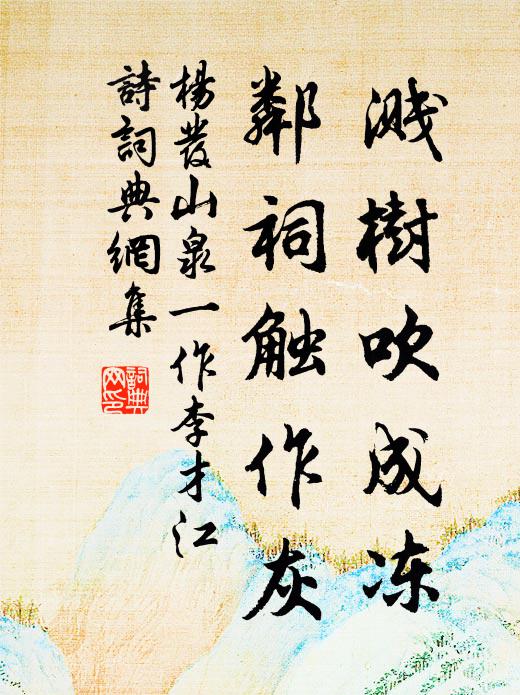 溅樹吹成冻
鄰祠触作灰
楊發山泉一作李才江
詩詞典網集
詞典網印